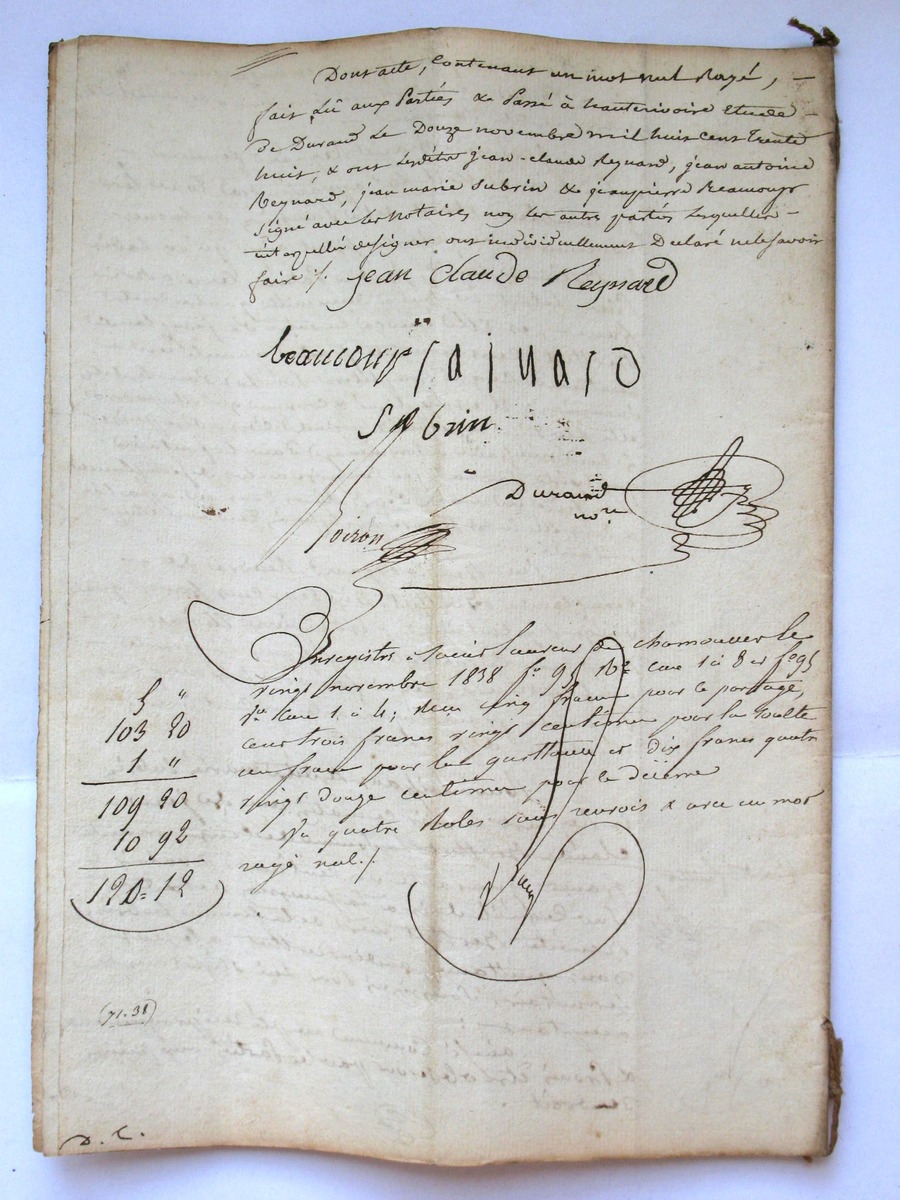 Dont acte, Contenant un mot nul Rayé, —
fait Lû aux Parties & Passé à hauterivoire Etude
de Durand Le Douze novembre mil huit Cent trente
huit, & ont Lesdits jean-claude Reynard, jean antoine
Reynard, jean marie Subrin & jeanpierre Beaucoup
signé avec les Notaires non les autres parties Lesquelles —
interpellés de signer ont individuellement Declaré ne le savoir
faire ./. jean Claude Reynard
beaucoup
Subrin
Durand
nore
Loiron
Enregistré à le
vingt novembre 1838 fo 95 Ro Case 1 à 8 et fo 95
Vo Case 1 à 4; Reçu cinq francs pour le partage,
cent trois francs vingt centimes pour la soulte
un franc pour la quittance et dix francs quatre
vingt douze centimes pour le dixième
Vu quatre Roles sans renvois & avec un mot
rayé nul ./.
5 "
103 20
1 "
109 20
10 92
120=12
(71-38)
D. C.